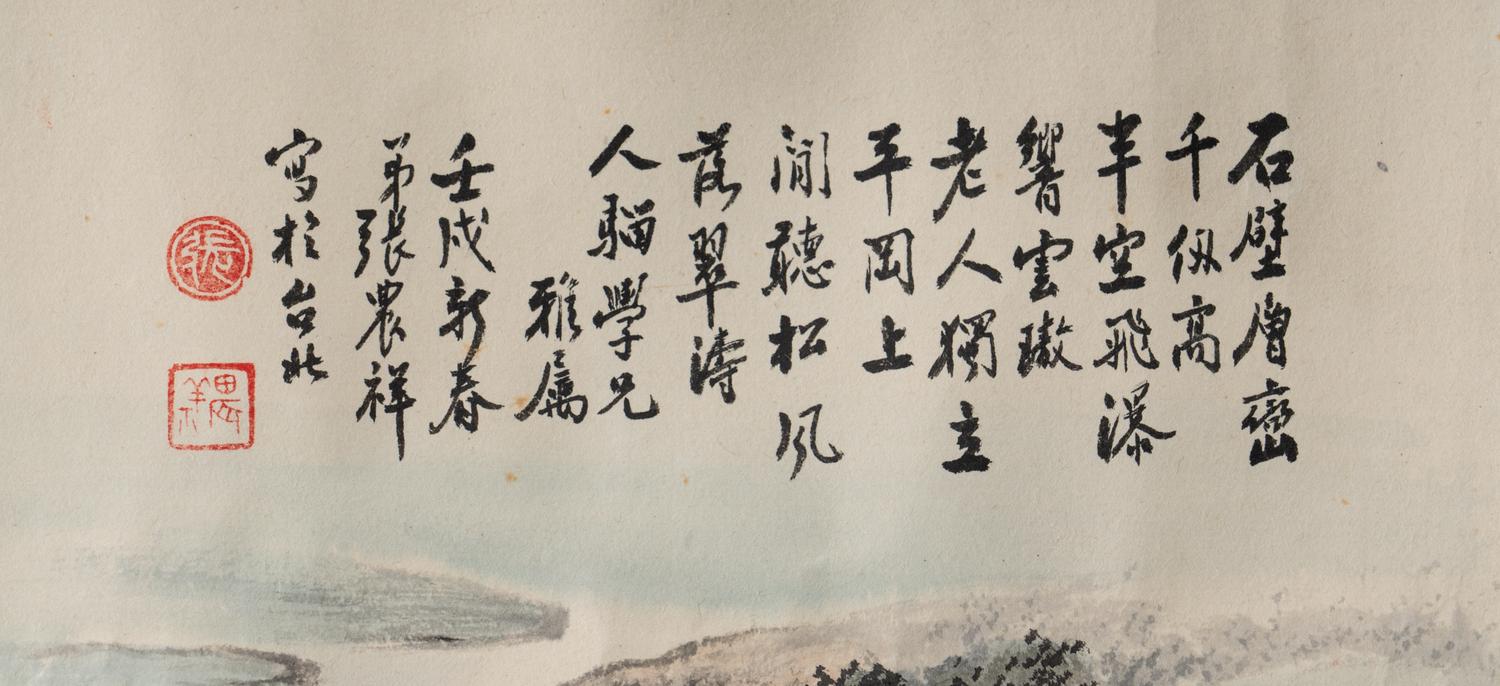 石壁層巒
千仭高
半空飛瀑
響雲璈
老人獨立
平岡上
閒聽松風
落翠濤
人騮學兄
雅屬
壬戌新春
弟張農祥
寫於台北
張
農祥